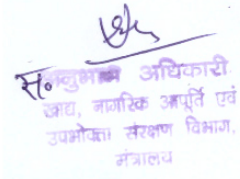 स. अनुभाग अधिकारी
खाद्य, नागरिक आपूर्ति एवं
उपभोक्ता संरक्षण विभाग,
मंत्रालय